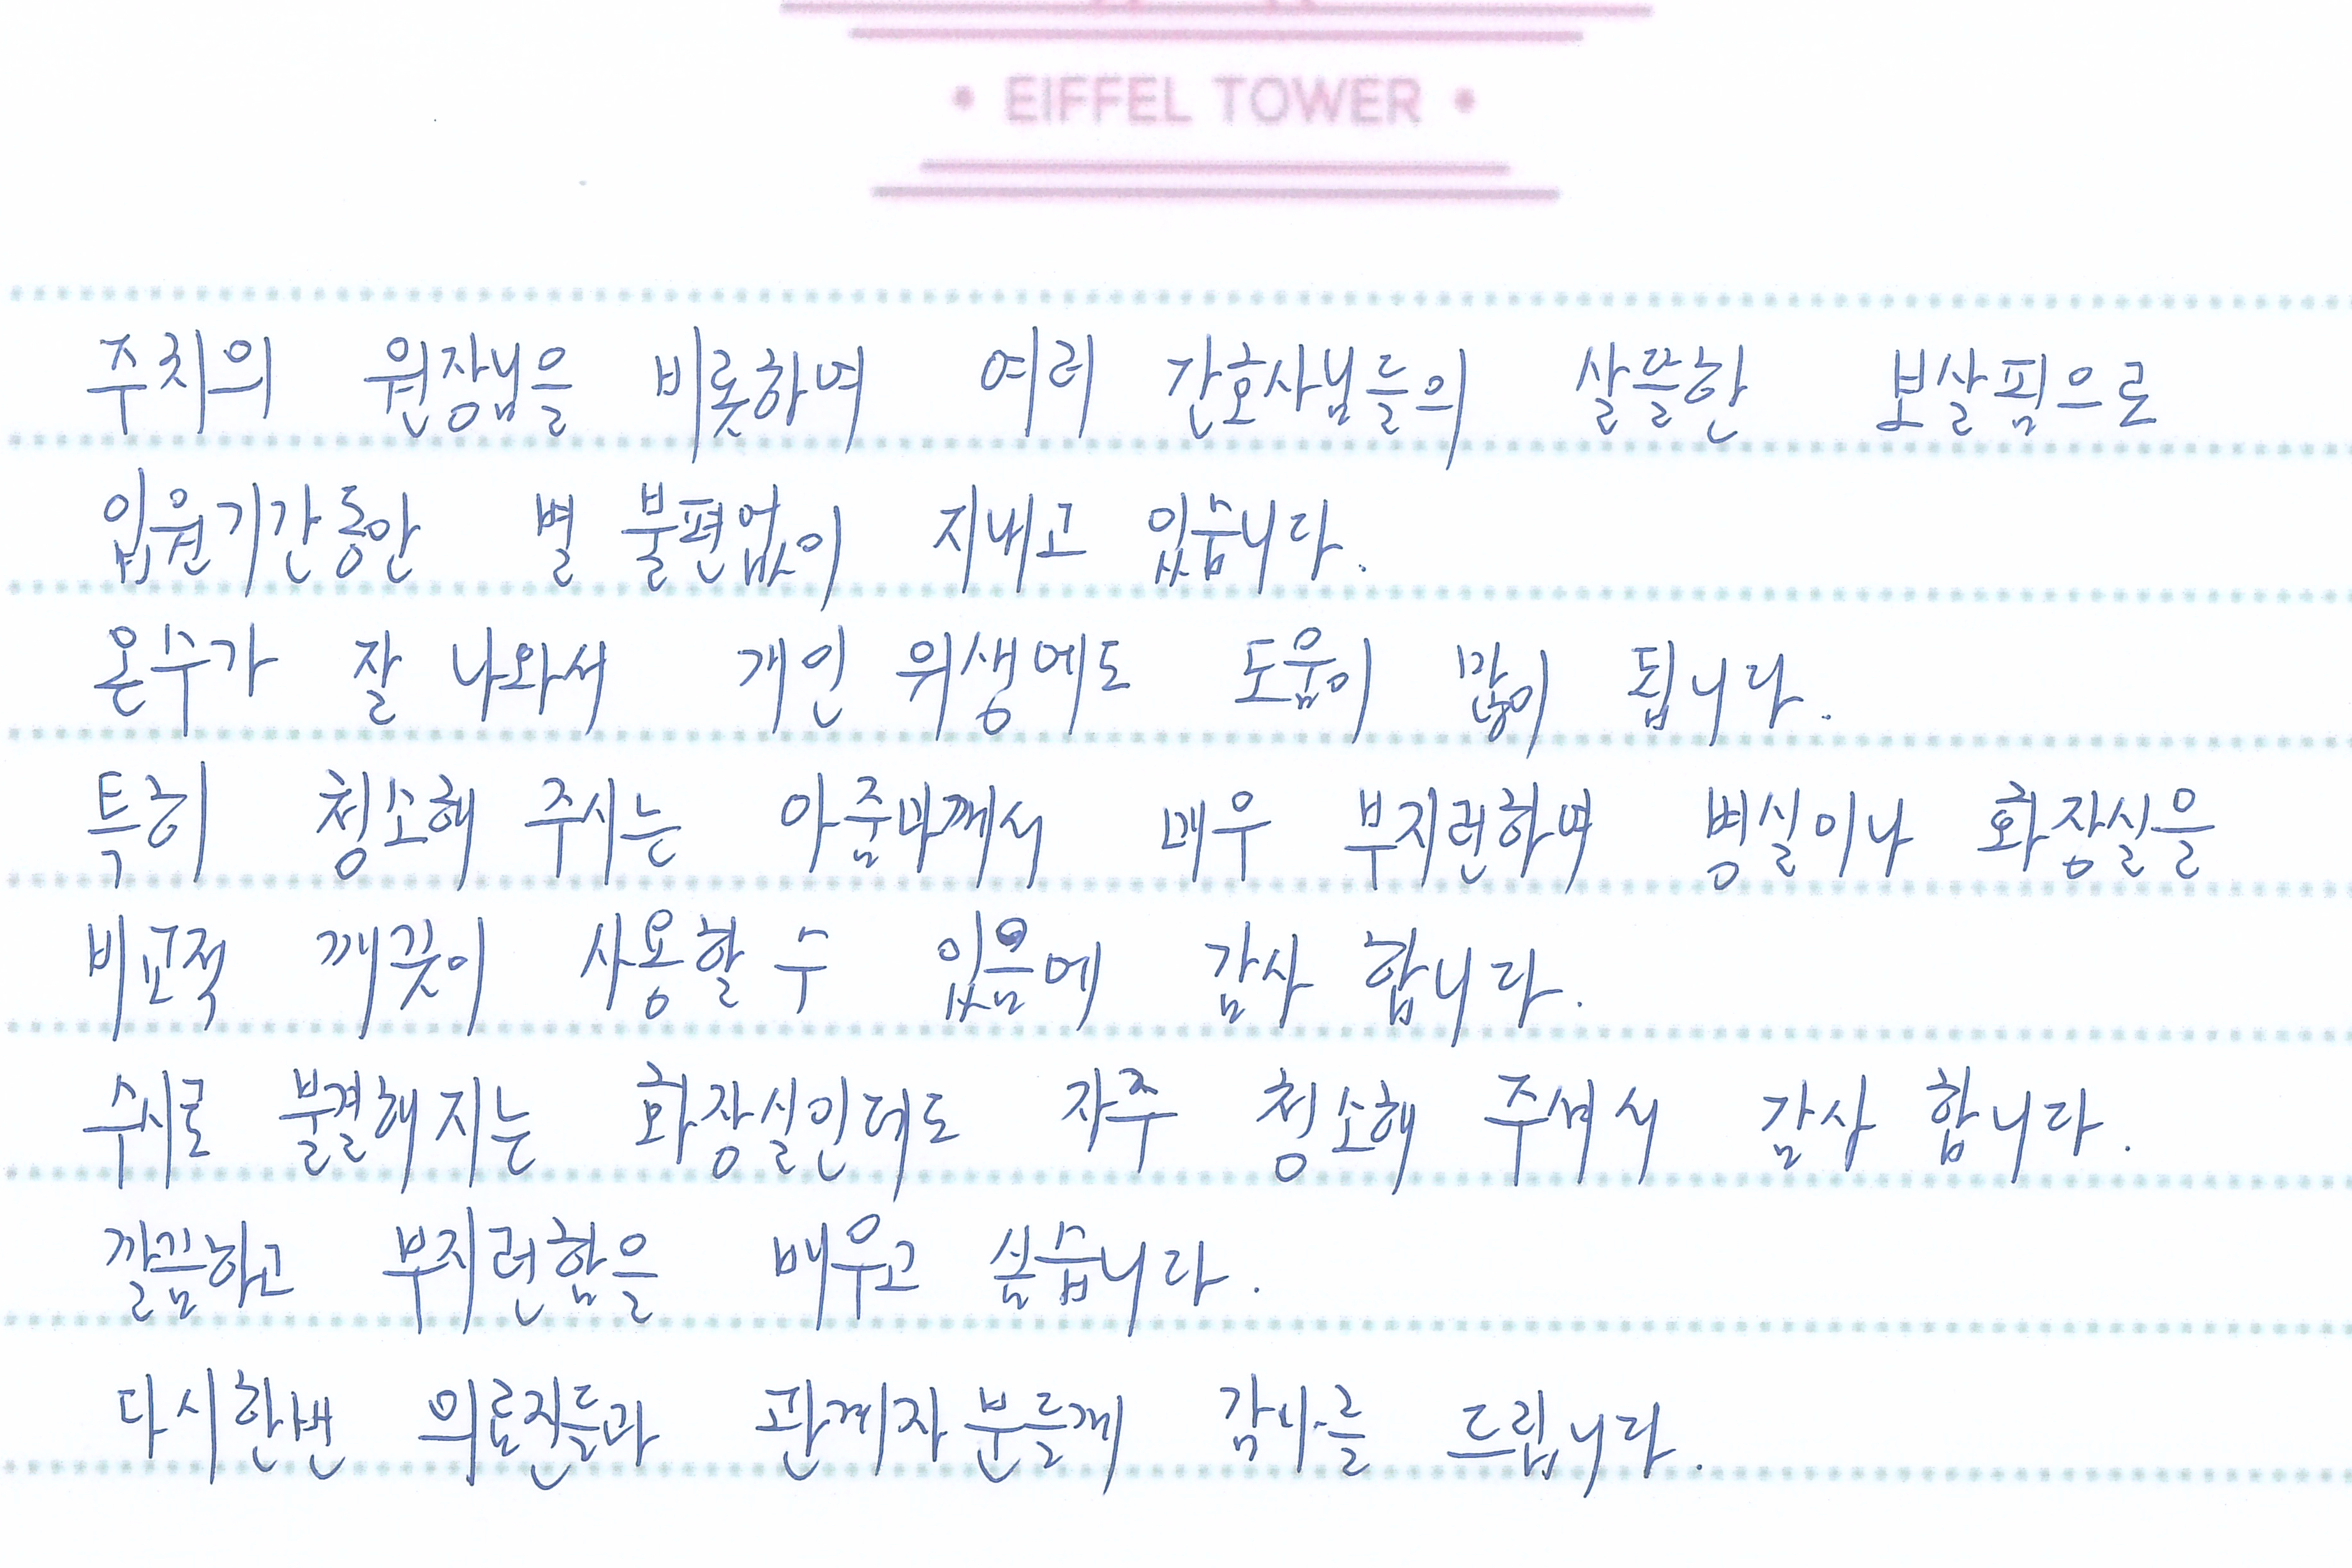 • EIFFEL TOWER •
주치의 원장님을 비롯하여 여러 간호사님들의 살뜰한 보살핌으로
입원기간동안 별 불편없이 지내고 있습니다.
온수가 잘 나와서 개인 위생에도 도움이 많이 됩니다.
특히 청소해 주시는 아줌마께서 매우 부지런하며 병실이나 화장실을
비교적 깨끗이 사용할 수 있음에 감사 합니다.
수시로 불결해지는 화장실인데도 자주 청소해 주셔서 감사 합니다.
깔끔하고 부지런함을 배우고 싶습니다.
다시한번 의료진들과 관계자분들께 감사를 드립니다.